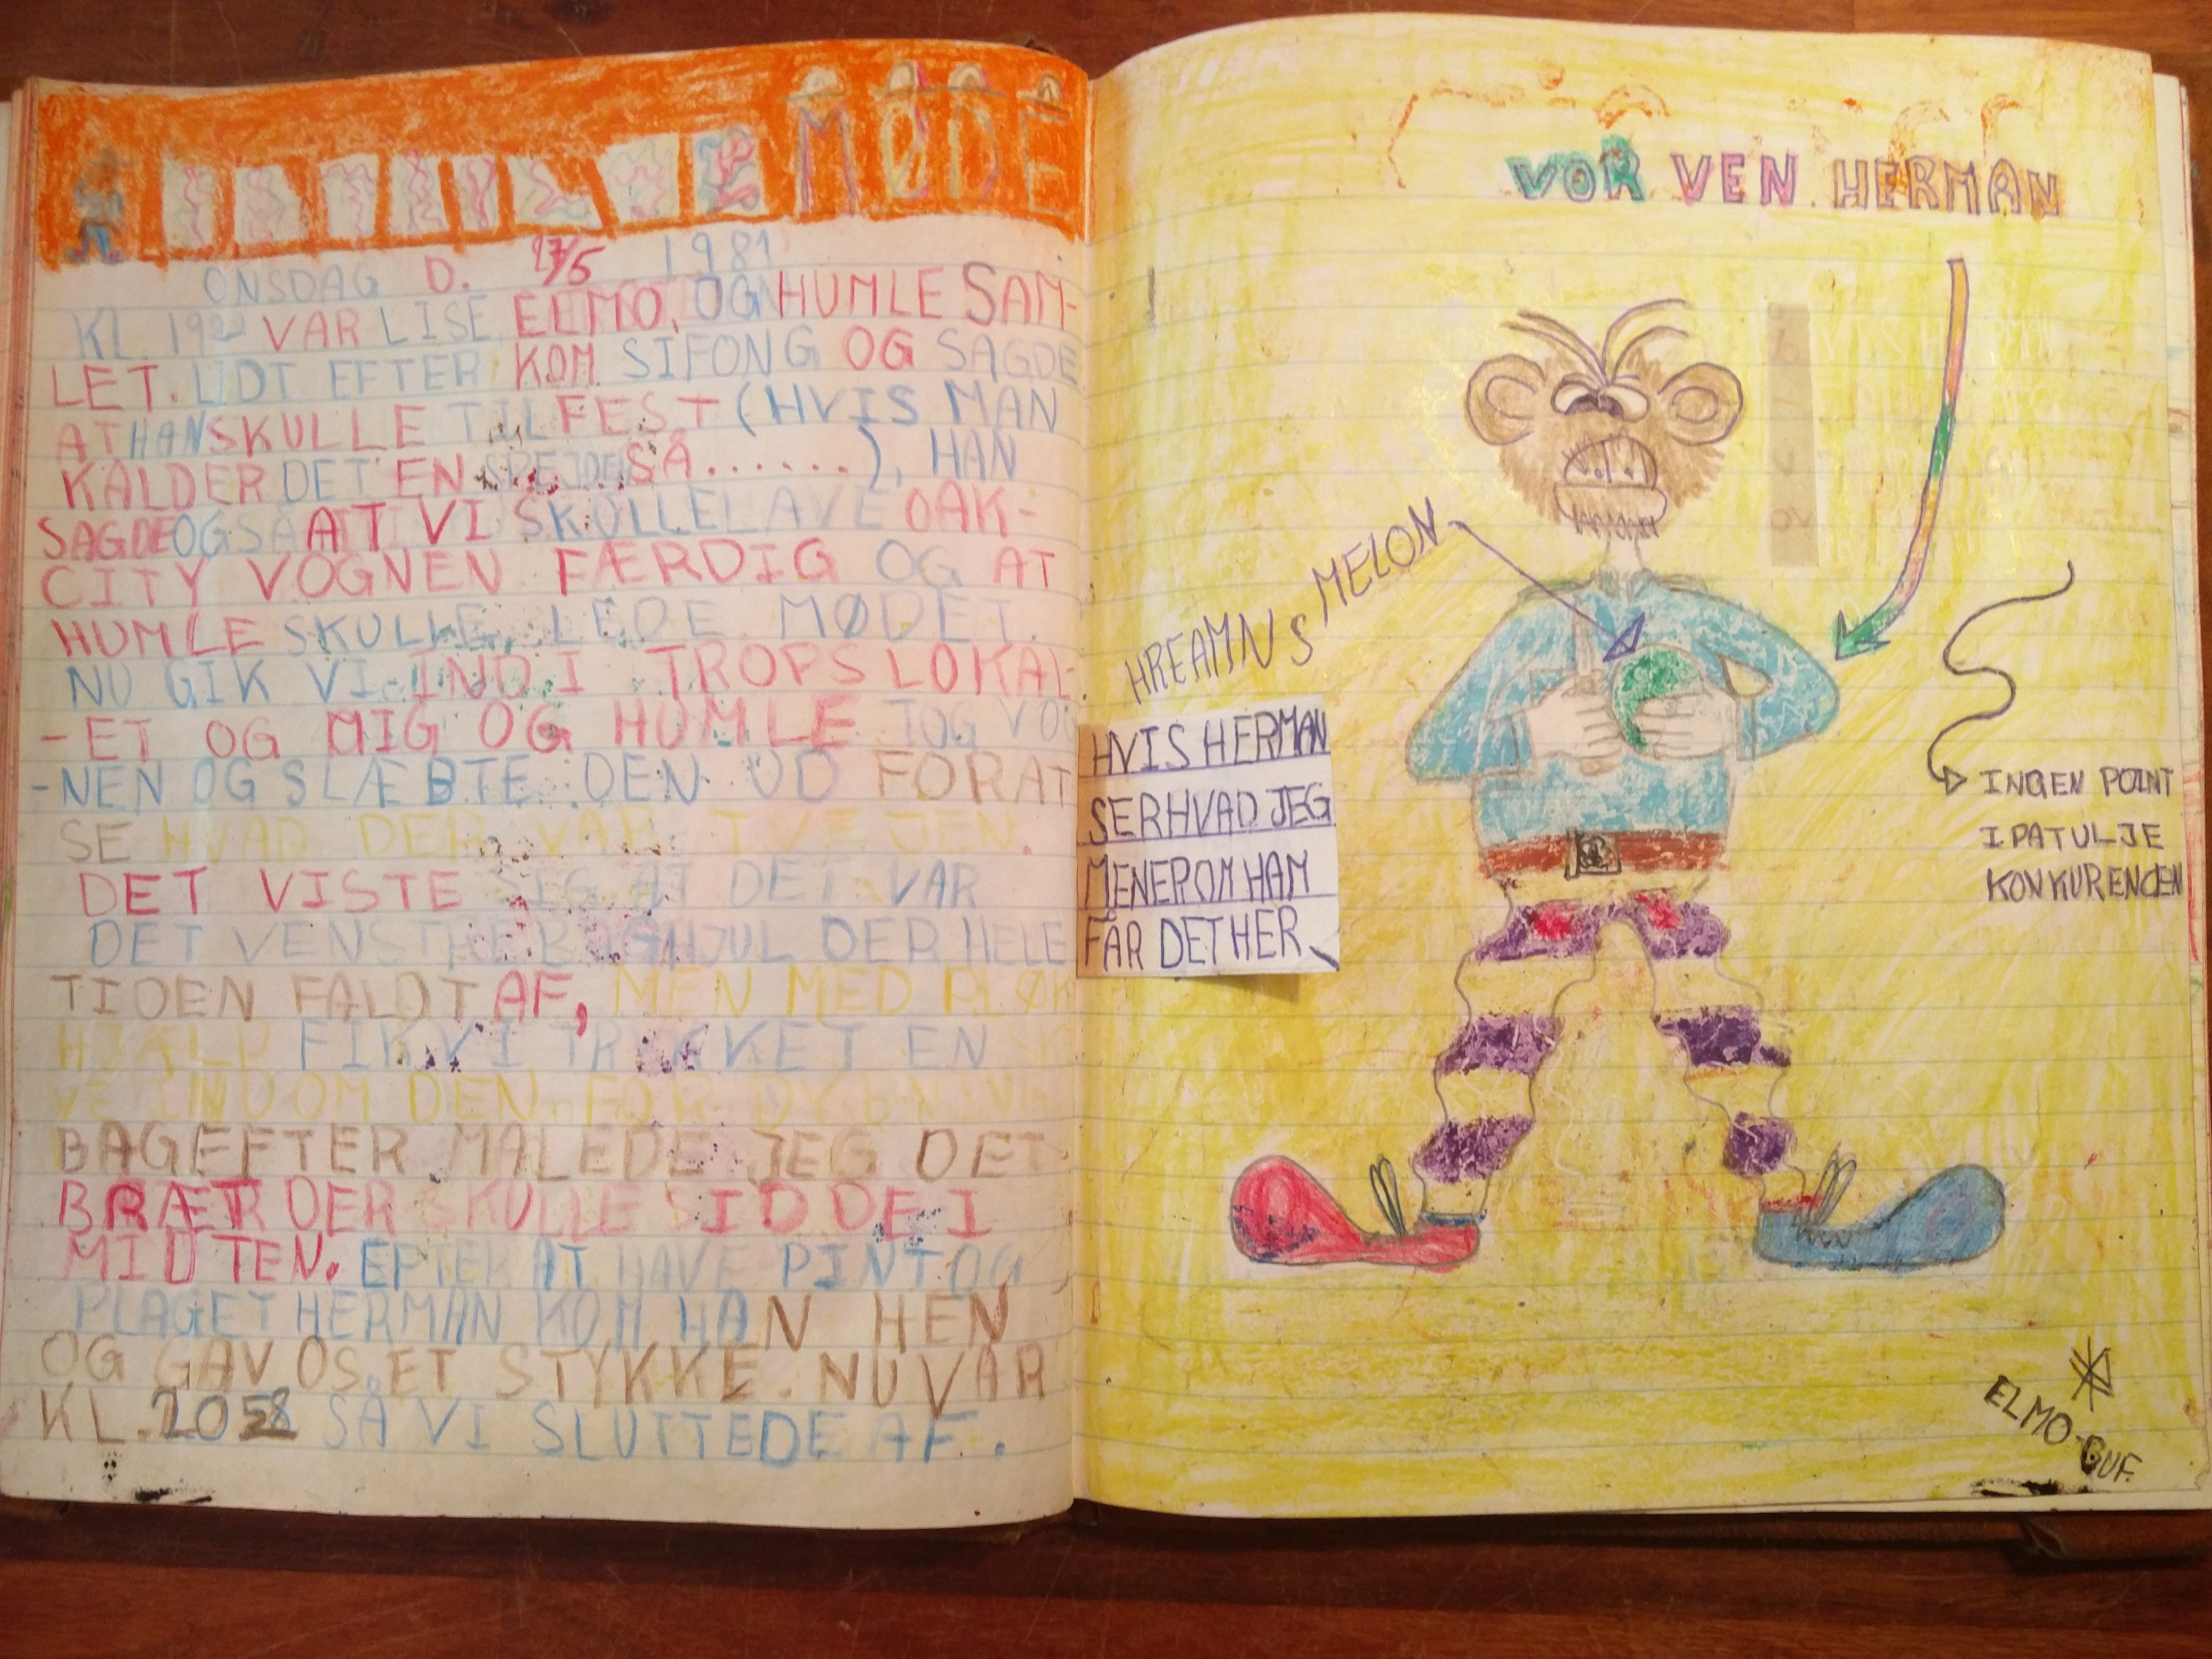 MØDE
ONSDAG D. 17/5 1981
KL 19²² VAR LISE, ELMO, OG HUMLE SAM-
LET. LIDT EFTER KOM SIFONG OG SAGDE
AT HAN SKULLE TIL FEST (HVIS MAN
KALDER DET EN SPEJDER SÅ.......), HAN
SAGDE OGSÅ AT VI SKULLE LAVE OAK-
CITY VOGNEN FÆRDIG OG AT
HUMLE SKULLE LEDE MØDET.
NU GIK VI IND I TROPSLOKAL-
-ET OG MIG OG HUMLE TOG VO
-NEN OG SLÆBTE DEN UD FORAT
SE HVAD DER VAR I VEJEN.
DET VISTE SIG AT DET VAR
DET VENSTRE BAGHJUL DER HELE
TIDEN FALDT AF, MEN MED PLØK
HJÆLP FIK VI TRUKKET EN
IND OM DEN FOR
BAGEFTER MALEDE JEG DET
BRÆT DER SKULLE SIDDE I
MIDTEN. EFTER AT HAVE PINT OG
PLAGET HERMAN KOM HAN HEN
OG GAV OS ET STYKKE. NU VAR
KL. 20 58 SÅ VI SLUTTEDE AF.
VOR VEN HERMAN
HREAMNS MELON
HVIS HERMAN
SER HVAD JEG
MENER OM HAM
FÅR DET HER
INGEN POINT
I PATULJE
KONKURENCEN
ELMO-BUF.